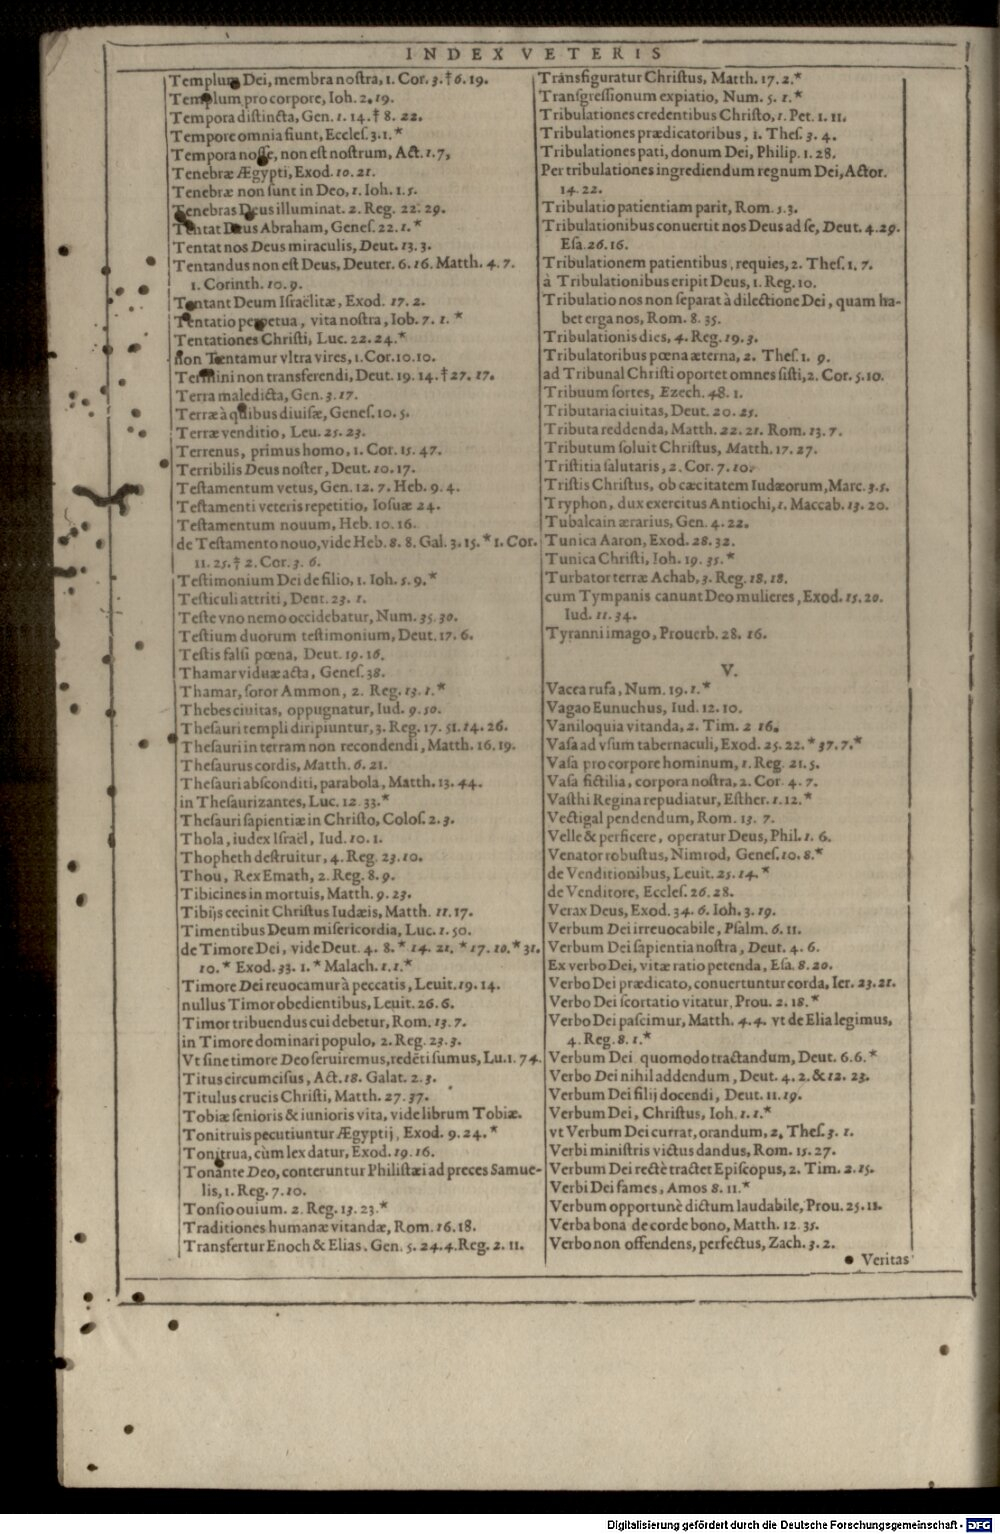 INDEX VETERIS
Templum Dei, membra noſtra, 1. Cor. 3. † 6. 19.
Templum pro corpore, Ioh. 2. 19.
Tempora diſtincta, Gen. 1. 14. † 8. 22.
Tempore omnia fiunt, Eccleſ. 3. 1. *
Tempora noſſe, non eſt noſtrum, Act. 1. 7,
Tenebræ Ægypti, Exod. 10. 21.
Tenebræ non ſunt in Deo, 1. Ioh. 1. 5.
Tenebras Deus illuminat. 2. Reg. 22. 29.
Tentat Deus Abraham, Geneſ. 22. 1. *
Tentat nos Deus miraculis, Deut. 13. 3.
Tentandus non eſt Deus, Deuter. 6. 16. Matth. 4. 7.
1. Corinth. 10. 9.
Tentant Deum Iſraëlitæ, Exod. 17. 2.
Tentatio perpetua, vita noſtra, Iob. 7. 1. *
Tentationes Chriſti, Luc. 22. 24. *
non Tentamur vltra vires, 1. Cor. 10. 10.
Termini non transferendi, Deut. 19. 14. † 27. 17.
Terra maledicta, Gen. 3. 17.
Terræ à quibus diuiſæ, Geneſ. 10. 5.
Terræ venditio, Leu. 25. 23.
Terrenus, primus homo, 1. Cor. 15. 47.
Terribilis Deus noſter, Deut. 10. 17.
Teſtamentum vetus, Gen. 12. 7. Heb. 9. 4.
Teſtamenti veteris repetitio, Ioſuæ 24.
Teſtamentum nouum, Heb. 10. 16.
de Teſtamento nouo, vide Heb. 8. 8. Gal. 3. 15. * 1. Cor.
11. 25. † 2. Cor. 3. 6.
Teſtimonium Dei de filio, 1. Ioh. 5. 9. *
Teſticuli attriti, Deut. 23. 1.
Teſte vno nemo occidebatur, Num. 35. 30.
Teſtium duorum teſtimonium, Deut. 17. 6.
Teſtis falſi pœna, Deut. 19. 16.
Thamar viduæ acta, Geneſ. 38.
Thamar, ſoror Ammon, 2. Reg. 13. 1. *
Thebes ciuitas, oppugnatur, Iud. 9. 50.
Theſauri templi diripiuntur, 3. Reg. 17. 51. 14. 26.
Theſauri in terram non recondendi, Matth. 16. 19.
Theſaurus cordis, Matth. 6. 21.
Theſauri abſconditi, parabola, Matth. 13. 44.
in Theſaurizantes, Luc. 12. 33. *
Theſauri ſapientiæ in Chriſto, Coloſ. 2. 3.
Thola, iudex Iſraël, Iud. 10. 1.
Thopheth deſtruitur, 4. Reg. 23. 10.
Thou, Rex Emath, 2. Reg. 8. 9.
Tibicines in mortuis, Matth. 9. 23.
Tibijs cecinit Chriſtus Iudæis, Matth. 11. 17.
Timentibus Deum miſericordia, Luc. 1. 50.
de Timore Dei, vide Deut. 4. 8. * 14. 21. * 17. 10. * 31.
10. * Exod. 33. 1. * Malach. 1. 1. *
Timore Dei reuocamur à peccatis, Leuit. 19. 14.
nullus Timor obedientibus, Leuit. 26. 6.
Timor tribuendus cui debetur, Rom. 13. 7.
in Timore dominari populo, 2. Reg. 23. 3.
Vt ſine timore Deo ſeruiremus, redẽti ſumus, Lu. 1. 74.
Titus circumciſus, Act. 18. Galat. 2. 3.
Titulus crucis Chriſti, Matth. 27. 37.
Tobiæ ſenioris & iunioris vita, vide librum Tobiæ.
Tonitruis pecutiuntur Ægyptij, Exod. 9. 24. *
Tonitrua, cùm lex datur, Exod. 19. 16.
Tonante Deo, conteruntur Philiſtæi ad preces Samue-
lis, 1. Reg. 7. 10.
Tonſio ouium. 2. Reg. 13. 23. *
Traditiones humanæ vitandæ, Rom. 16. 18.
Transfertur Enoch & Elias. Gen. 5. 24. 4. Reg. 2. 11.
Transfiguratur Chriſtus, Matth. 17. 2. *
Tranſgreſſionum expiatio, Num. 5. 1. *
Tribulationes credentibus Chriſto, 1. Pet. 1. 11.
Tribulationes prædicatoribus, 1. Theſ. 3. 4.
Tribulationes pati, donum Dei, Philip. 1. 28.
Per tribulationes ingrediendum regnum Dei, Actor.
14. 22.
Tribulatio patientiam parit, Rom. 5. 3.
Tribulationibus conuertit nos Deus ad ſe, Deut. 4. 29.
Eſa. 26. 16.
Tribulationem patientibus, requies, 2. Theſ. 1. 7.
à Tribulationibus eripit Deus, 1. Reg. 10.
Tribulatio nos non ſeparat à dilectione Dei, quam ha-
bet erga nos, Rom. 8. 35.
Tribulationis dies, 4. Reg. 19. 3.
Tribulatoribus pœna æterna, 2. Theſ. 1. 9.
ad Tribunal Chriſti oportet omnes ſiſti, 2. Cor. 5. 10.
Tribuum ſortes, Ezech. 48. 1.
Tributaria ciuitas, Deut. 20. 25.
Tributa reddenda, Matth. 22. 21. Rom. 13. 7.
Tributum ſoluit Chriſtus, Matth. 17. 27.
Triſtitia ſalutaris, 2. Cor. 7. 10.
Triſtis Chriſtus, ob cæcitatem Iudæorum, Marc. 3. 5.
Tryphon, dux exercitus Antiochi, 1. Maccab. 13. 20.
Tubalcain ærarius, Gen. 4. 22.
Tunica Aaron, Exod. 28. 32.
Tunica Chriſti, Ioh. 19. 35. *
Turbator terræ Achab, 3. Reg. 18. 18.
cum Tympanis canunt Deo mulieres, Exod. 15. 20.
Iud. 11. 34.
Tyranni imago, Prouerb. 28. 16.
V.
Vacca rufa, Num. 19. 1. *
Vagao Eunuchus, Iud. 12. 10.
Vaniloquia vitanda, 2. Tim. 2 16.
Vaſa ad vſum tabernaculi, Exod. 25. 22. * 37. 7. *
Vaſa pro corpore hominum, 1. Reg. 21. 5.
Vaſa fictilia, corpora noſtra, 2. Cor. 4. 7.
Vaſthi Regina repudiatur, Eſther. 1. 12. *
Vectigal pendendum, Rom. 13. 7.
Velle & perficere, operatur Deus, Phil. 1. 6.
Venator robuſtus, Nimrod, Geneſ. 10. 8. *
de Venditionibus, Leuit. 25. 14. *
de Venditore, Eccleſ. 26. 28.
Verax Deus, Exod. 34. 6. Ioh. 3. 19.
Verbum Dei irreuocabile, Pſalm. 6. 11.
Verbum Dei ſapientia noſtra, Deut. 4. 6.
Ex verbo Dei, vitæ ratio petenda, Eſa. 8. 20.
Verbo Dei prædicato, conuertuntur corda, Ier. 23. 21.
Verbo Dei ſcortatio vitatur, Prou. 2. 18. *
Verbo Dei paſcimur, Matth. 4. 4. vt de Elia legimus,
4. Reg. 8. 1. *
Verbum Dei quomodo tractandum, Deut. 6. 6. *
Verbo Dei nihil addendum, Deut. 4. 2. & 12. 23.
Verbum Dei filij docendi, Deut. 11. 19.
Verbum Dei, Chriſtus, Ioh. 1. 1. *
vt Verbum Dei currat, orandum, 2. Theſ. 3. 1.
Verbi miniſtris victus dandus, Rom. 15. 27.
Verbum Dei rectè tractet Epiſcopus, 2. Tim. 2. 15.
Verbi Dei fames, Amos 8. 11. *
Verbum opportunè dictum laudabile, Prou. 25. 11.
Verba bona de corde bono, Matth. 12. 35.
Verbo non offendens, perfectus, Zach. 3. 2.
Veritas
Digitalisierung gefördert durch die Deutsche Forschungsgemeinschaft - DFG